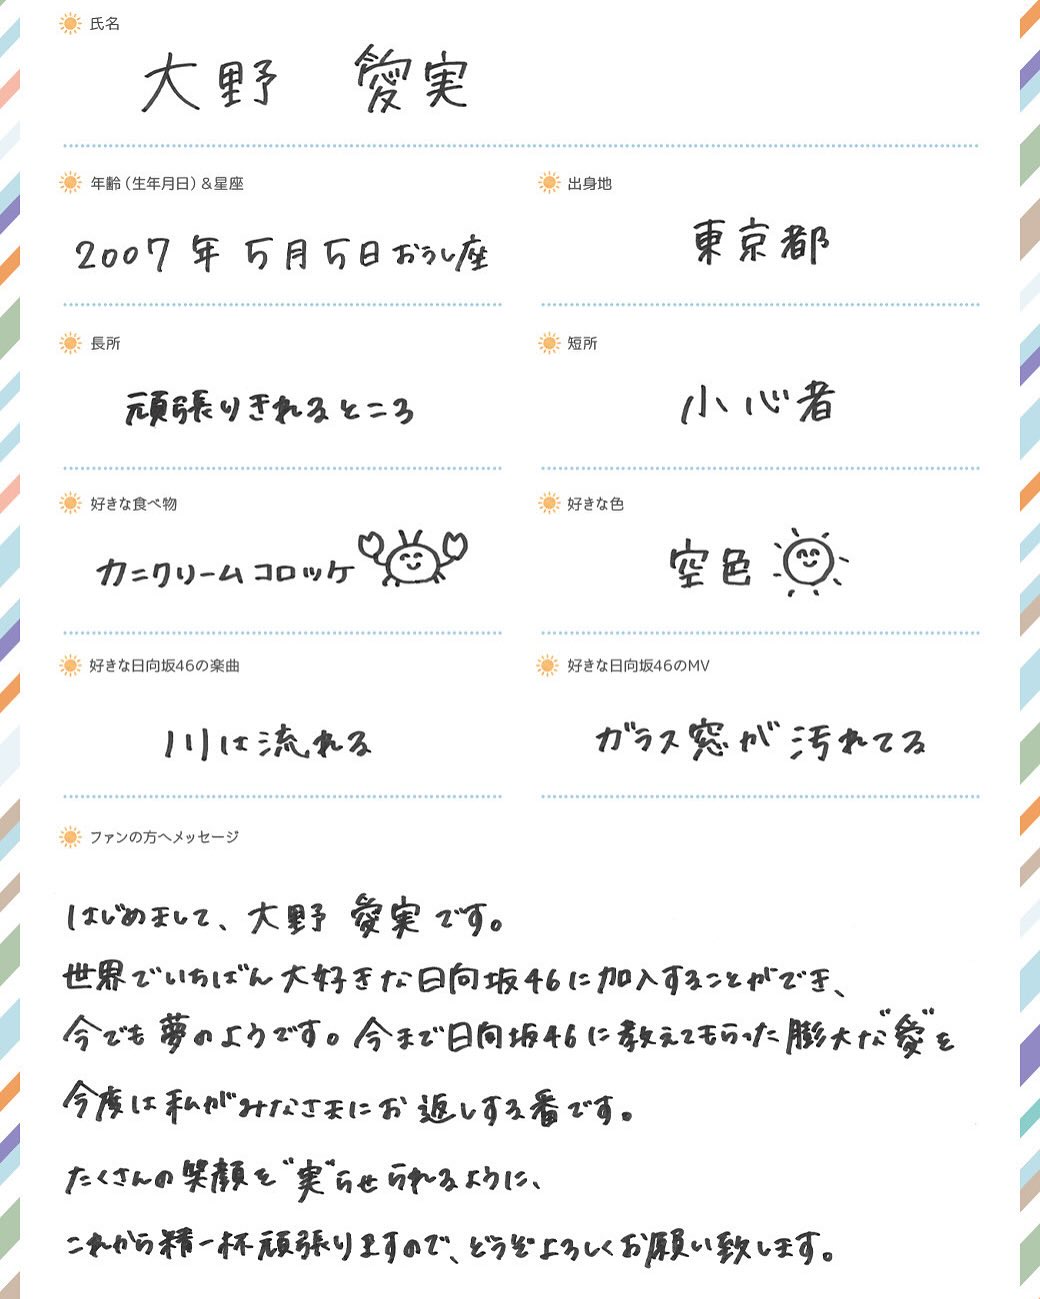 氏名
大野 愛実
年齢(生年月日)&星座
2007年 5月5日 おうし座
出身地
東京都
長所
頑張りきれるところ
短所
小心者
好きな食べ物
カニクリームコロッケ
好きな色
空色
好きな日向坂46の楽曲
川は流れる
好きな日向坂46のMV
ガラス窓が汚れてる
ファンの方へメッセージ
はじめまして、大野 愛実です。
世界でいちばん大好きな日向坂46に加入することができ、
今でも夢のようです。今まで日向坂46に教えてもらった膨大な"愛"を
今度は私がみなさまにお返しする番です。
たくさんの笑顔を"実"らせられるように、
これから精一杯頑張りますので、どうぞよろしくお願い致します。